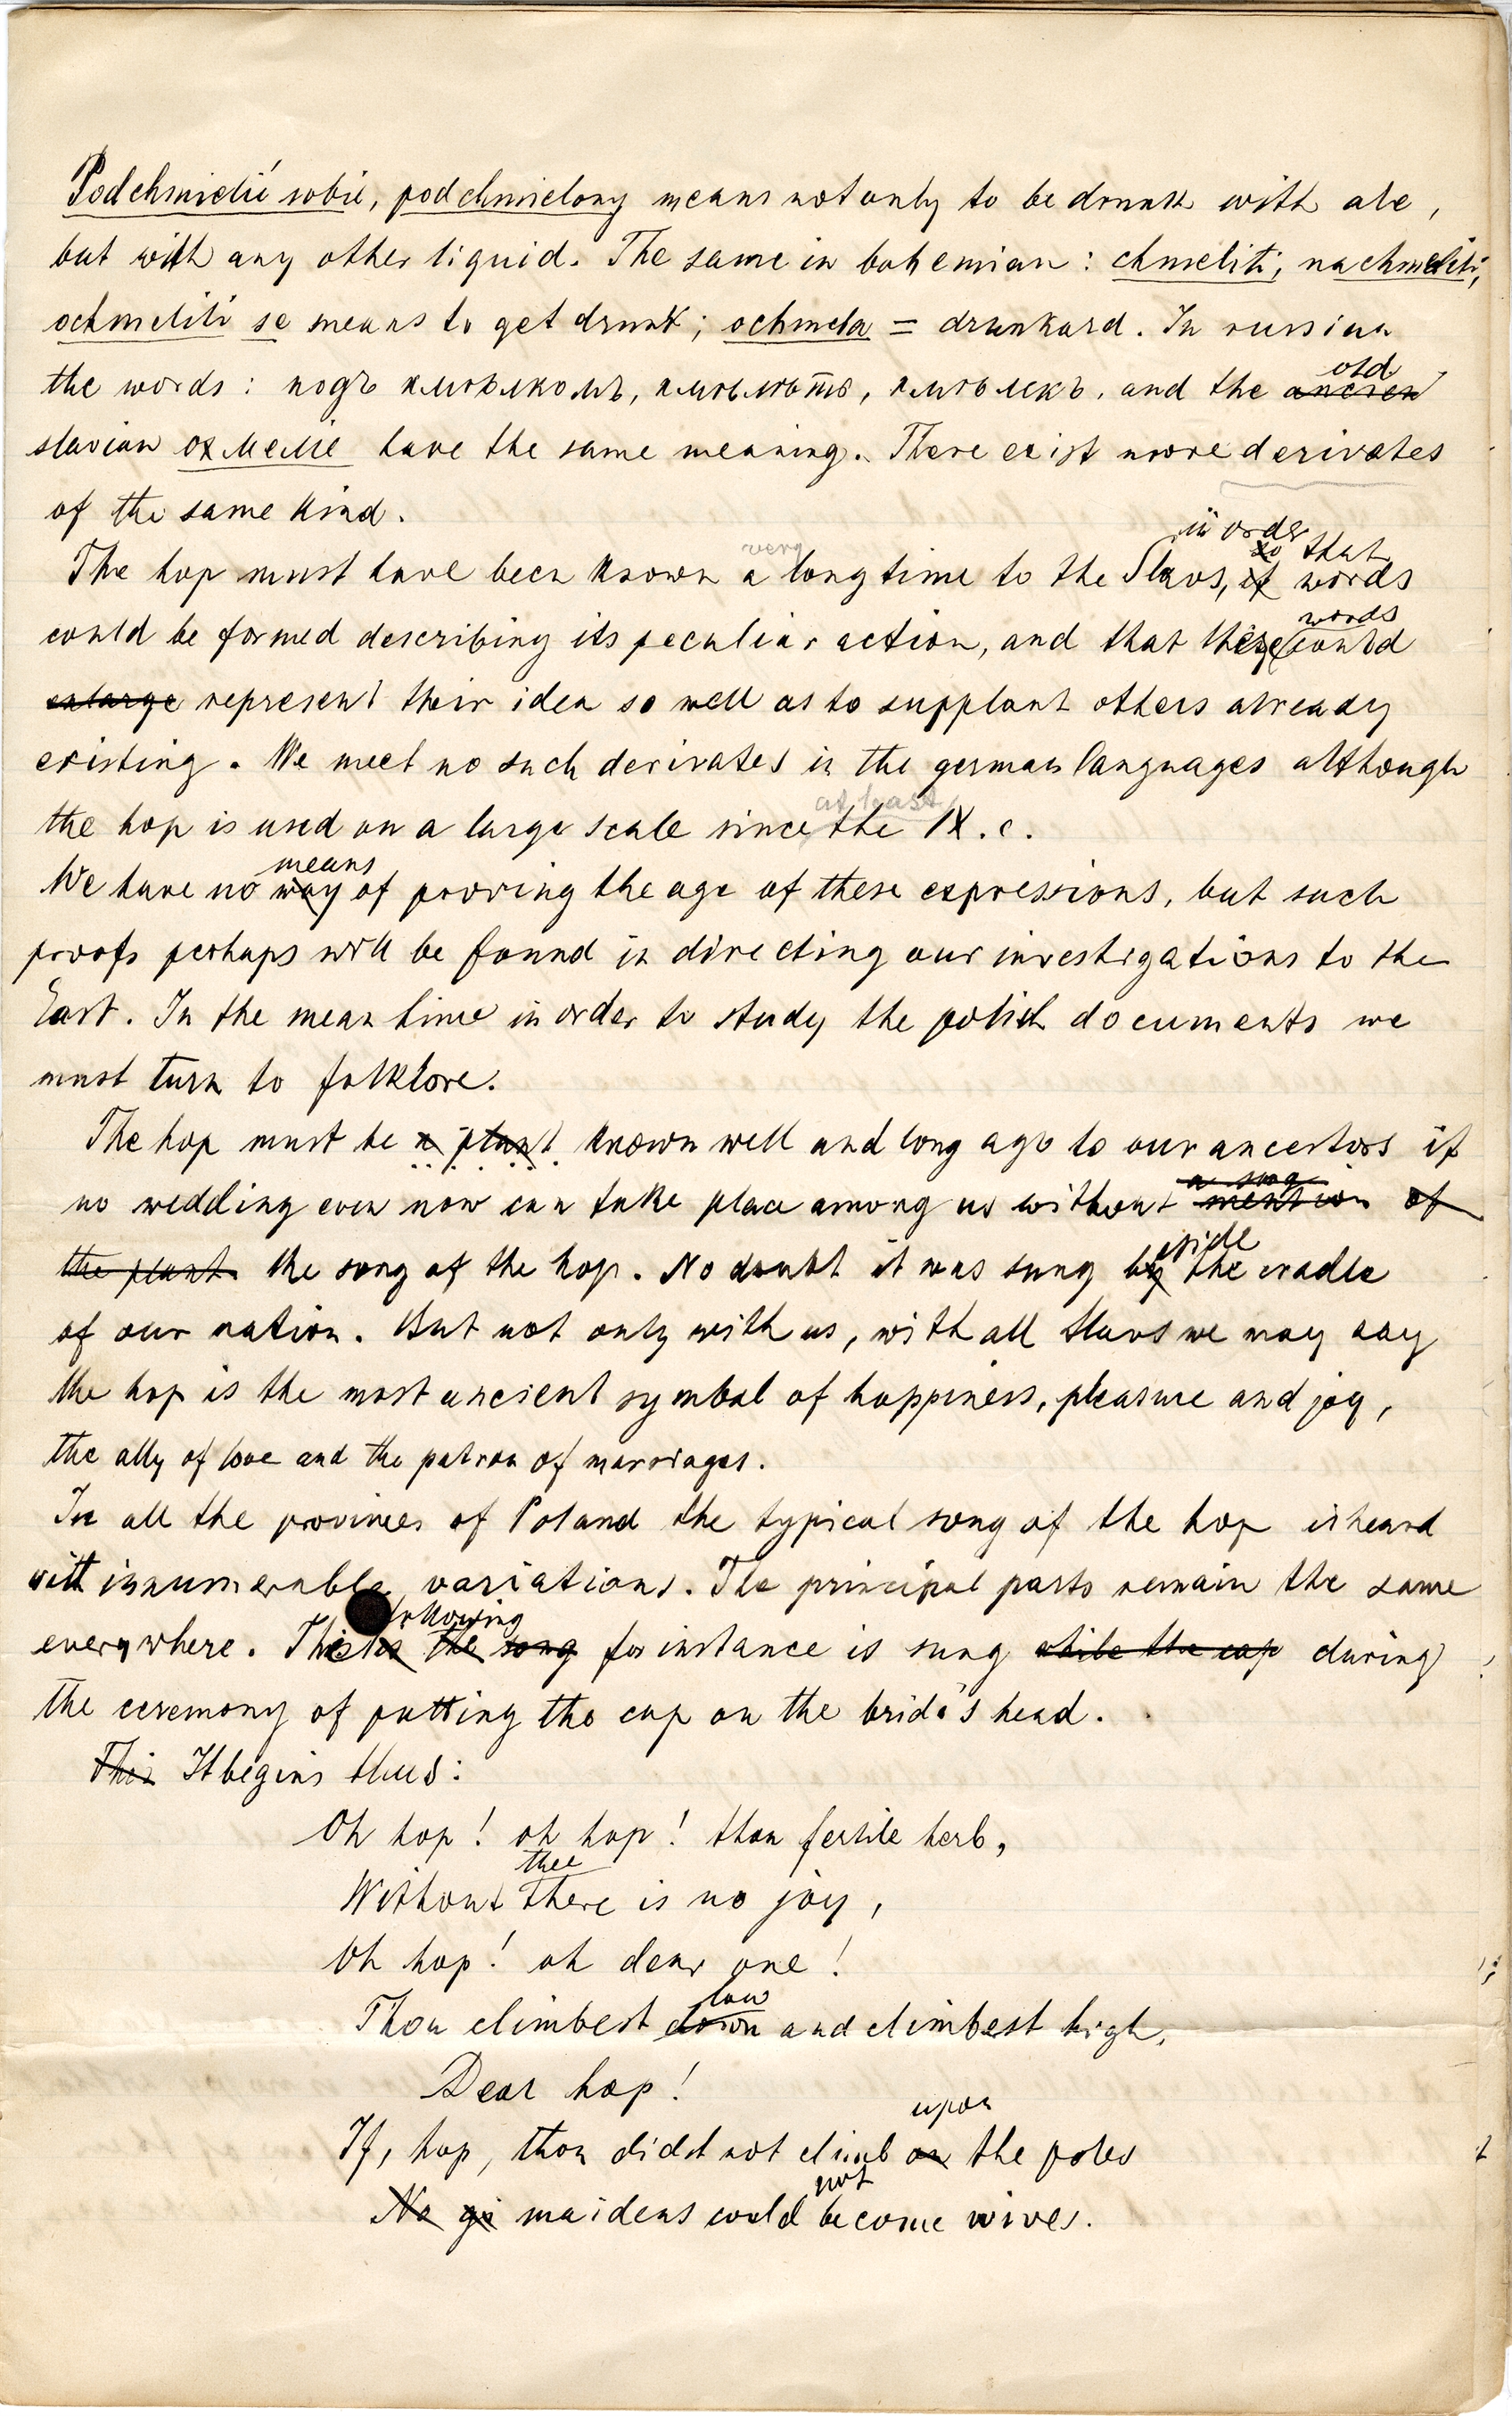 Podchmielić sobie, podchmielony means not only to be drunk with ale,
but with any other liquid. The same in bohemian: chmeliti, nachmeliti,
ochmeliti se means to get drunk; ochmela = drunkard. In russian
old
the words: подъ хмѣлькомъ, хмѣлѣть, хмѣлекъ, and the ancien
slavian охмеліе have the same meaning. There exist more derivates
of the same kind.
in order
very so that
The hop must have been known a long time to the Slavs, if words
words
could be formed describing its peculiar action, and that these could
enlarge represent their idea so well as to supplant others already
existing. We meet no such derivates in the german languages although
at least
the hop is used on a large scale since the IX. c.
means
We have no way of proving the age of these expressions, but such
proofs perhaps will be found in directing our investigations to the
East. In the mean time in order to study the polish documents we
must turn to folklore.
The hop must be a plant known well and long ago to our ancestors if
a song
no wedding even now can take place among us without mention of
eside
the plant the song of the hop. No doubt it was sung by the cradle
of our nation. But not only with us, with all Slavs we may say
the hop is the most ancient symbol of happiness, pleasure and joy,
the ally of love and the patron of marriages.
In all the provinces of Poland the typical song of the hop is heard
with innumerable variations. The principal parts remain the same
following
everywhere. The is the song for instance is sung while the cap during
the ceremony of putting the cap on the bride's head.
This It begins thus:
Oh hop! oh hop! thou fertile herb,
thee
Without there is no joy,
Oh hop! oh dear one!
low
Thou climbest down and climbest high,
Dear hop!
upon
If, hop, thou didst not climb on the poles
not
No gi maidens could become wives.